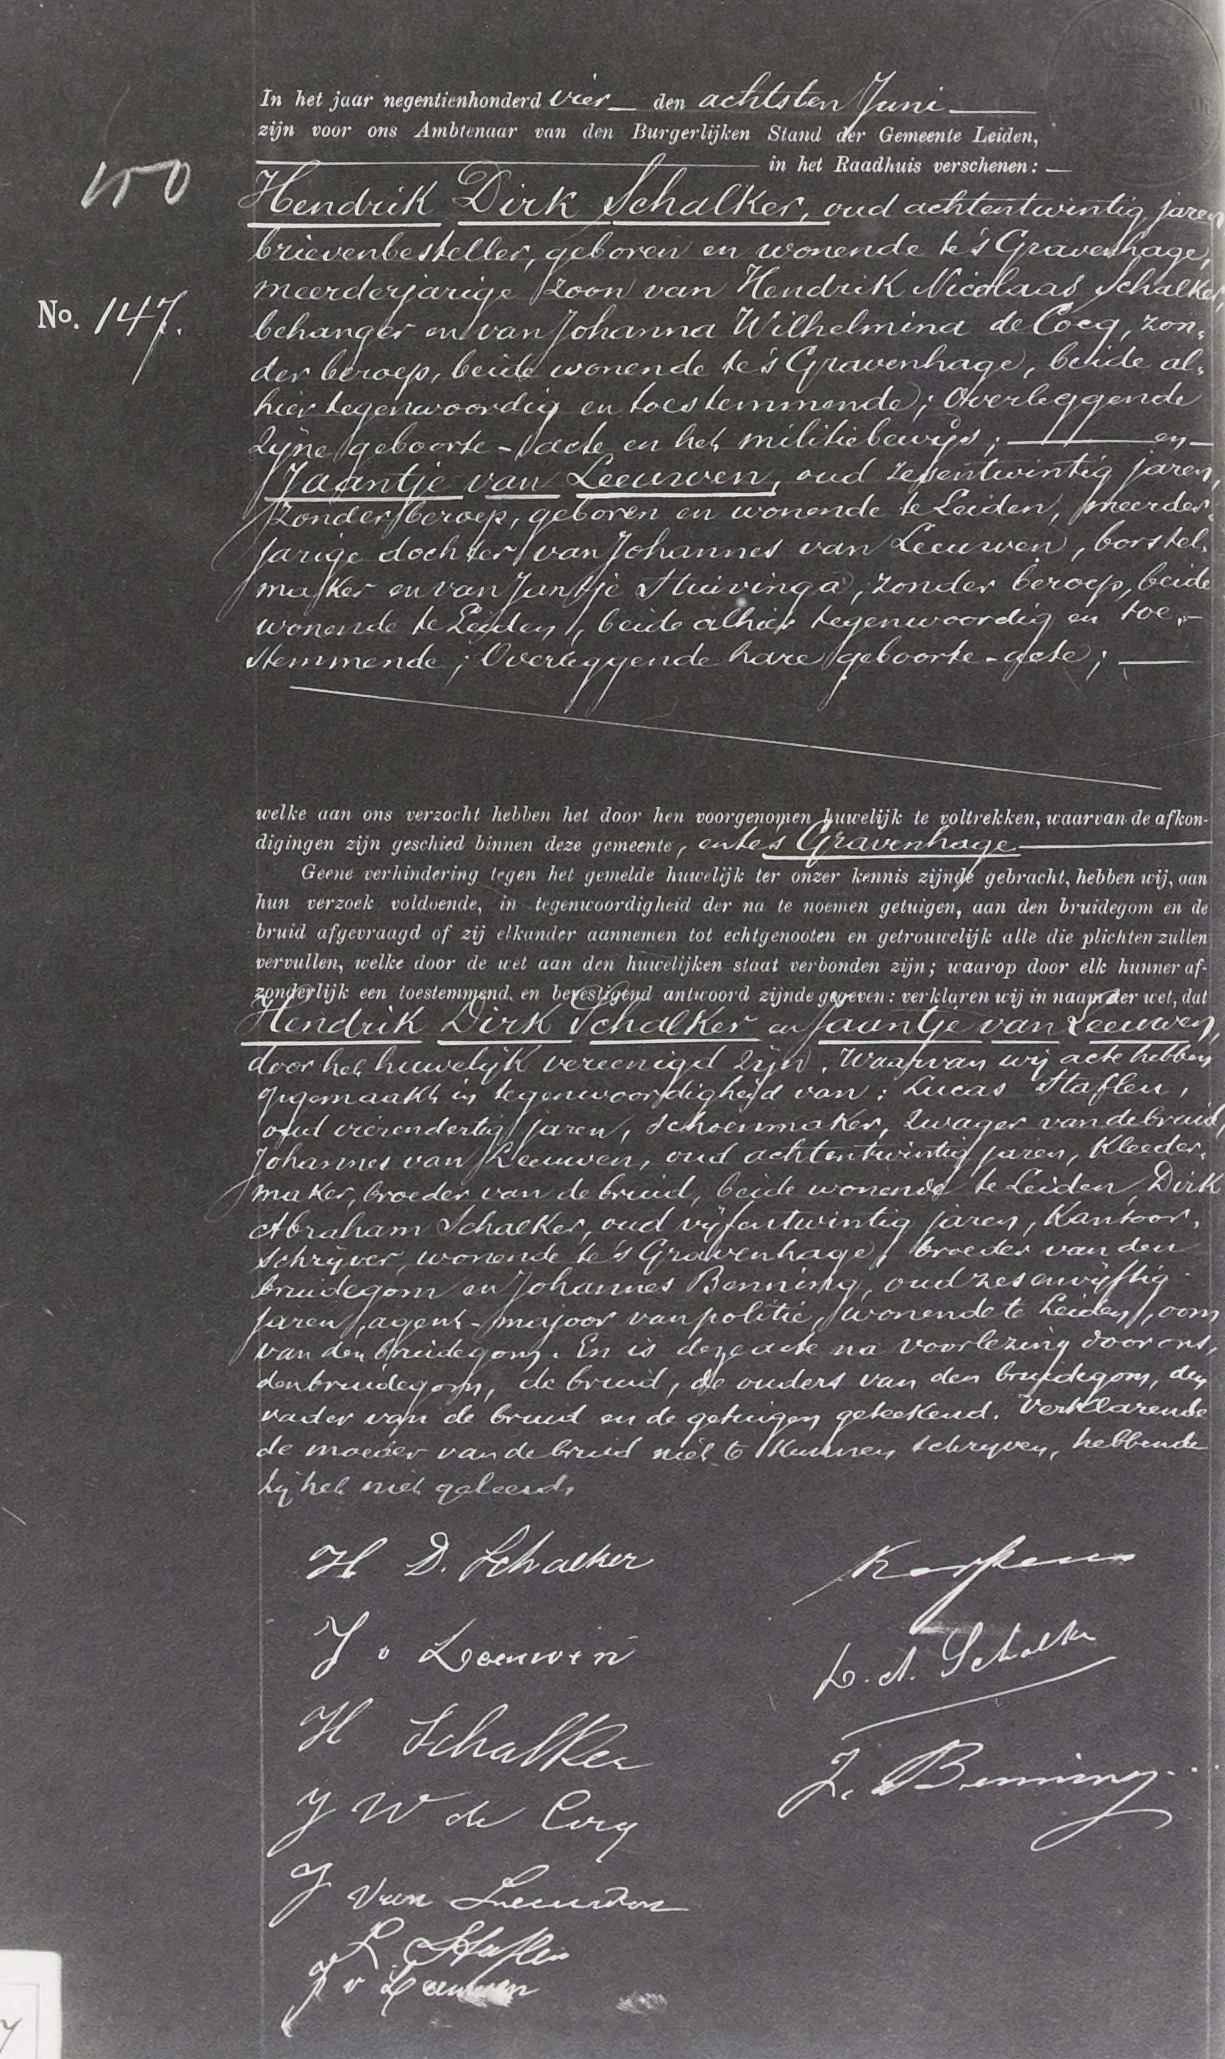 In het jaar negentienhonderd vier den achtsten Juni
zijn voor ons Ambtenaar van den Burgerlijken Stand der Gemeente Leiden,
in het Raadhuis verschenen:
Hendrik Dirk Schalker, oud achtentwintig jaren,
brievenbesteller, geboren en wonende te 's Gravenhage,
No. 147.
meerderjarige zoon van Hendrik Nicolaas Schalker
behanger en van Johanna Wilhelmina de Cocq, zon-
der beroep, beide wonende te 's Gravenhage, beide al-
hier tegenwoordig en toestemmende; Overleggende
zijne geboorte-acte en het militiebewijs; en
Jaantje van Leeuwen, oud zesentwintig jaren,
zonder beroep, geboren en wonende te Leiden, meerder-
jarige dochter van Johannes van Leeuwen, borstel-
maker en van Jantje Stuivinga, zonder beroep, beide
wonende te Leiden, beide alhier tegenwoordig en toe-
stemmende; Overleggende hare geboorte-acte;
welke aan ons verzocht hebben het door hen voorgenomen huwelijk te voltrekken, waarvan de afkon-
digingen zijn geschied binnen deze gemeente, en te 's Gravenhage
Geene verhindering tegen het gemelde huwelijk ter onzer kennis zijnde gebracht, hebben wij, aan
hun verzoek voldoende, in tegenwoordigheid der na te noemen getuigen, aan den bruidegom en de
bruid afgevraagd of zij elkander aannemen tot echtgenooten en getrouwelijk alle die plichten zullen
vervullen, welke door de wet aan den huwelijken staat verbonden zijn; waarop door elk hunner af-
zonderlijk een toestemmend en bevestigend antwoord zijnde gegeven: verklaren wij in naam der wet, dat
Hendrik Dirk Schalker en Jaantje van Leeuwen,
door het huwelijk vereenigd zijn. Waarvan wij acte hebben
opgemaakt in tegenwoordigheid van: Lucas Stafleu,
oud vierendertig jaren, schoenmaker, zwager van de bruid,
Johannes van Leeuwen, oud achtentwintig jaren, kleeder-
maker, broeder van de bruid, beide wonende te Leiden, Dirk
Abraham Schalker, oud vijfentwintig jaren, kantoor-
schrijver, wonende te 's Gravenhage, broeder van den
bruidegom en Johannes Benning, oud zesenvijftig
jaren, agent-majoor van politie, wonende te Leiden, oom
van den bruidegom. En is deze acte na voorlezing door ons,
den bruidegom, de bruid, de ouders van den bruidegom, den
vader van de bruid en de getuigen geteekend. Verklarende
de moeder van de bruid niet te kunnen schrijven, hebbende
zij het niet geleerd.
H D. Schalker
J v Leeuwen
D. A. Schalker
H Schalker
J. Benning
J W de Cocq
J van Leeuwen
L Stafleu
J v Leeuwen